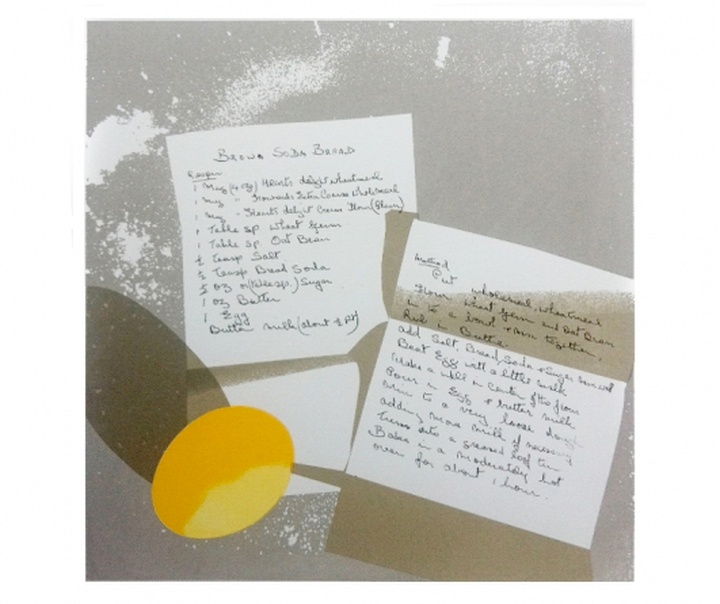 Brown Soda Bread
Recipe
1 Mug (4 oz) Hearts delight wheatmeal
1 Mug " Howards Extra Coarse Wholemeal
1 Mug " Hearts delight Cream Flour (Plain)
1 Table sp. Wheat Germ
1 Table sp. Oat Bran
½ Teasp Salt
½ Teasp Bread Soda
½ oz or (Tablesp.) Sugar
1 oz Butter
1 Egg
Butter milk (about ½ Pt)
Method
Put wholemeal, wheatmeal
Flour, Wheat Germ and Oat Bran
in to a bowl + mix together,
Rub in Butter
add Salt, Bread Soda + Sugar
Beat Egg with a little milk
Make a well in center of the flour
Pour in Egg + butter milk
mix to a very loose dough
adding more milk if necessary
Turn into a greased loaf tin
Bake in a moderately hot
oven for about 1 hour.